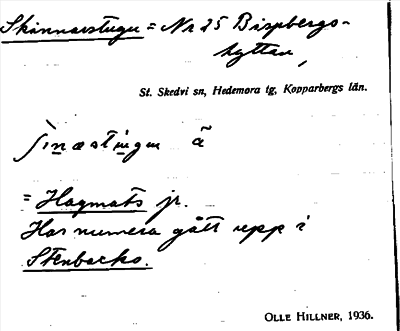 Skinnarstugu = Nr 25 Bispbergs-
hyttan,
St. Skedvi sn, Hedemora tg, Kopparbergs län.
= Hagmats jr.
Har numera gått upp i
Stenbacko.
OLLE HILLNER, 1936.